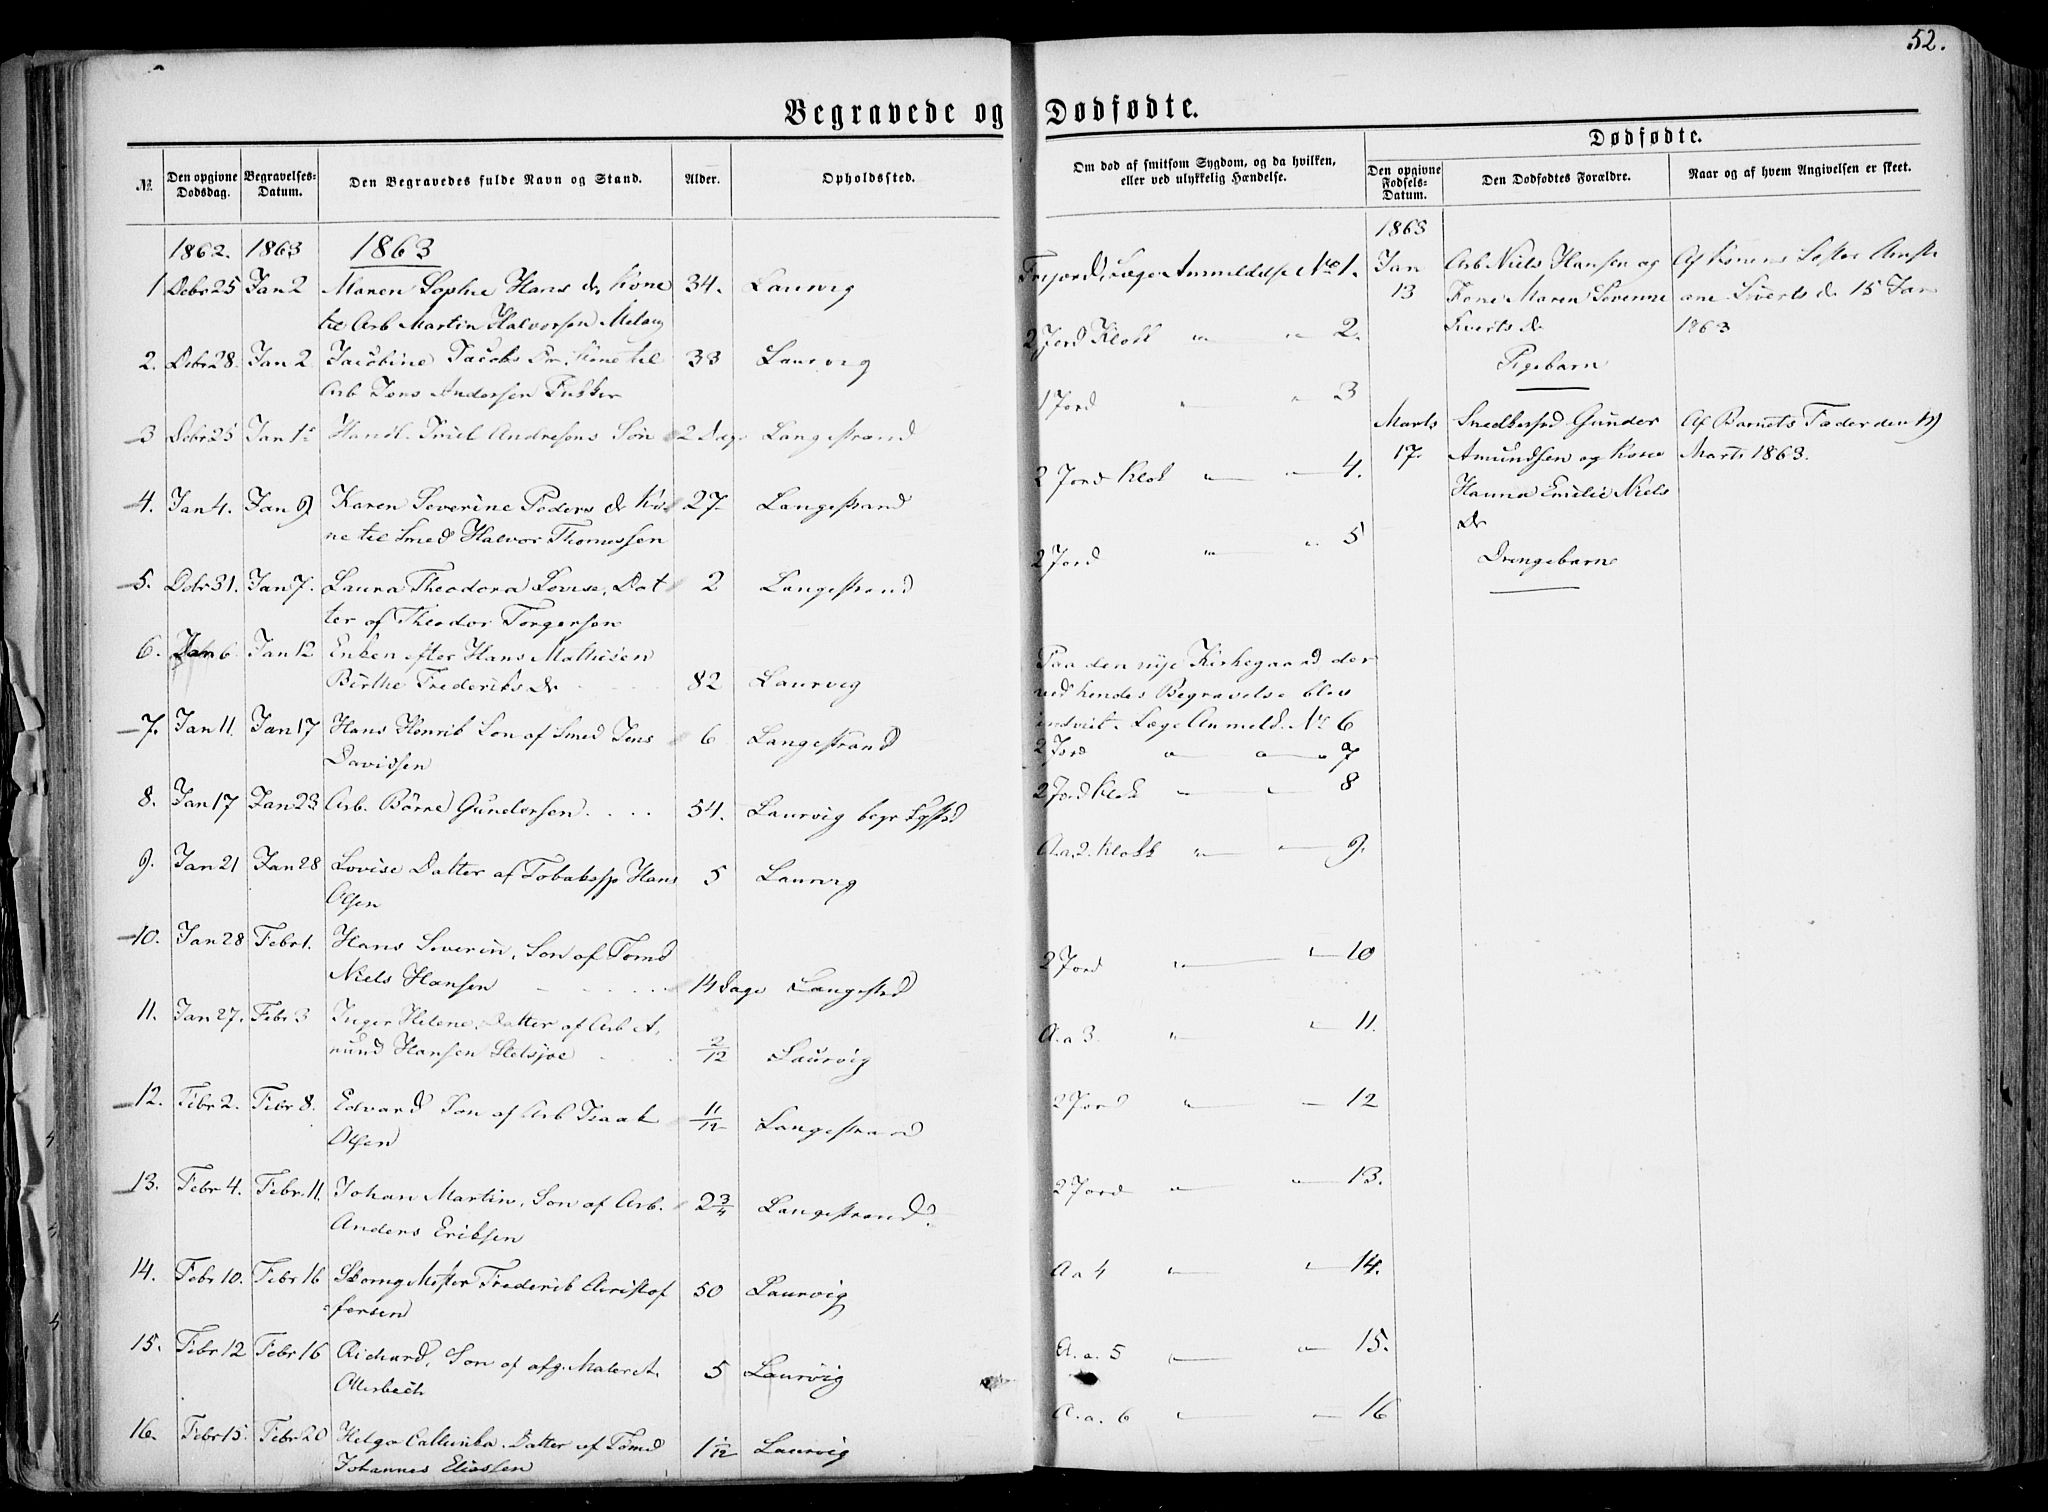 52.
Begravede og Dødfødte.
№ Den opgivne Dødsdag. Begravelses-Datum. Den Begravedes fulde Navn og Stand. Alder. Opholdssted.
1862. 1863 1863
1 Debr 25 Jan 2 Maren Sophie Hans dr, Kone 34. Laurvig
til Arb Martin Halvorsen
2. Debr 28. Jan 2 Jacobine Jacobs Dr. Kone til 33 Laurvig
Arb Jens Andersen
3 Debr 25 Jan Andresens Søn 2 Dage Langestrand
4. Jan 4. Jan 9. Karen Severine Peders dr Ko 27 Langestrand
ne til Smed Halvor Thomessen
5. Debr 31. Jan 7. Laura Theodora Lovise, Dat 2 Langestrand
ter af Theodor Torgersen
6. Jan 6 Jan 12 Enken efter Hans Mathisen
Birthe Frederiks Dr 82 Laurvig
7. Jan 11. Jan 17 Hans Henrik Søn af Smed Jens 6 Langestrand
Davidsen
8. Jan 17 Jan 23 Arb. Börre Gundersen . . . . 54. Laurvig begr
9. Jan 21 Jan 28 Lovise Datter af Hans 5 Laurvig
Olsen
10. Jan 28 Febr 1. Hans Severin, Søn af Tømd
Niels Hansen 14 Dage Langestrd
11. Jan 27. Febr 3 Inger Helene, Datter af Arb A,
mund Hansen 2/12 Laurvig
12. Febr 2. Febr 8. Edvard Søn af Arb Isaak 11/12 Langestrand
Olsen
13. Febr 4. Febr. 11. Johan Martin, Søn af Arb. 2 3/4 Langestrand.
Anders Eriksen
14. Febr 10. Febr 16 Mester Frederik Christof 50 Laurvig
fersen
15. Febr 12 Febr 16 Richard, Søn af afg. Maler A. 5 Laurvig
Otterbech
16. Febr 15. Febr 20 Helga Datter af Tømd 1 1/12 Laurvig
Johannes Eliassen
Om død af smitsom Sygdom, og da hvilken, eller ved ulykkelig Hændelse.
Frijord, Læge Anmeldelse No 1.
2 Jord Klok " " 2.
1 Jord " " 3
2 Jord Klok " " 4.
2 Jord " " 5
Paa den nye Kirkegaard der
ved hendes Begravelse blev
indviet. Læge Anmeld. No 6
2 Jord " " " 7
2 Jord Klok " " 8
A.a. 2. Klokk " " 9.
2 Jord " " 10
A. a 3. " " 11.
2 Jord " " 12
2 Jord " " 13.
A a 4 " " 14.
A. a. 5 " " 15.
A. a. 6 " " 16
Dødfødte.
Den opgivne Fødsels-Datum. Den Dødfødtes Forældre. Naar og af hvem Angivelsen er skeet.
1863
Jan Arb Niels Hansen og Af Konens Søster
13 Kone Maren Severine ane Siverts dr 15 Jan
Siverts Dr 1863
Pigebarn
Marts Gunder Af Barnets Fader den 19
17. Amundsen og Kone Marts 1863.
Hanna Emilie Niels
Dr
Drengebarn